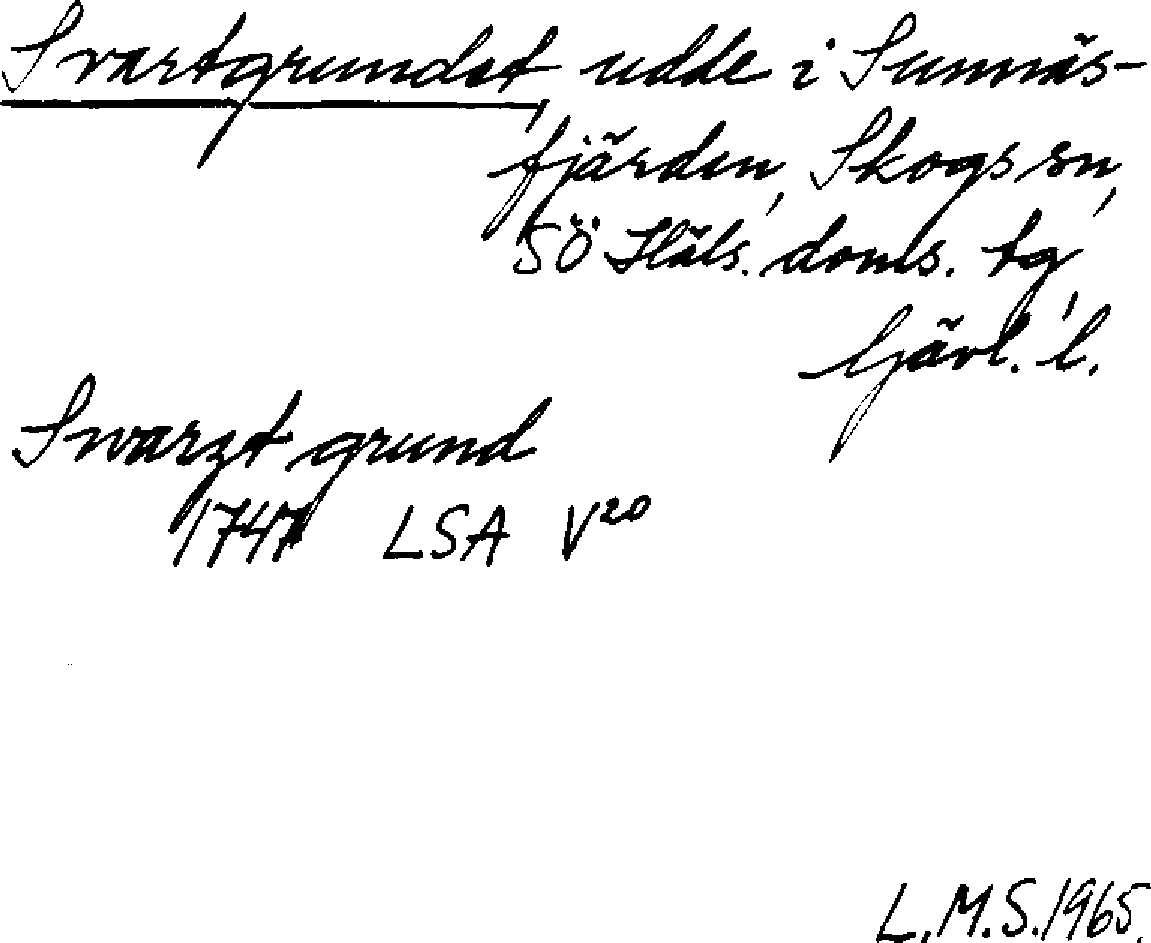 Svartgrundet, udde i Sunnäs-
fjärden, Skogs sn,
SÖ Häls. doms. tg,
Gävl. l.
Swarzt grund
1747 LSA V²⁰
L.M.S. 1965.